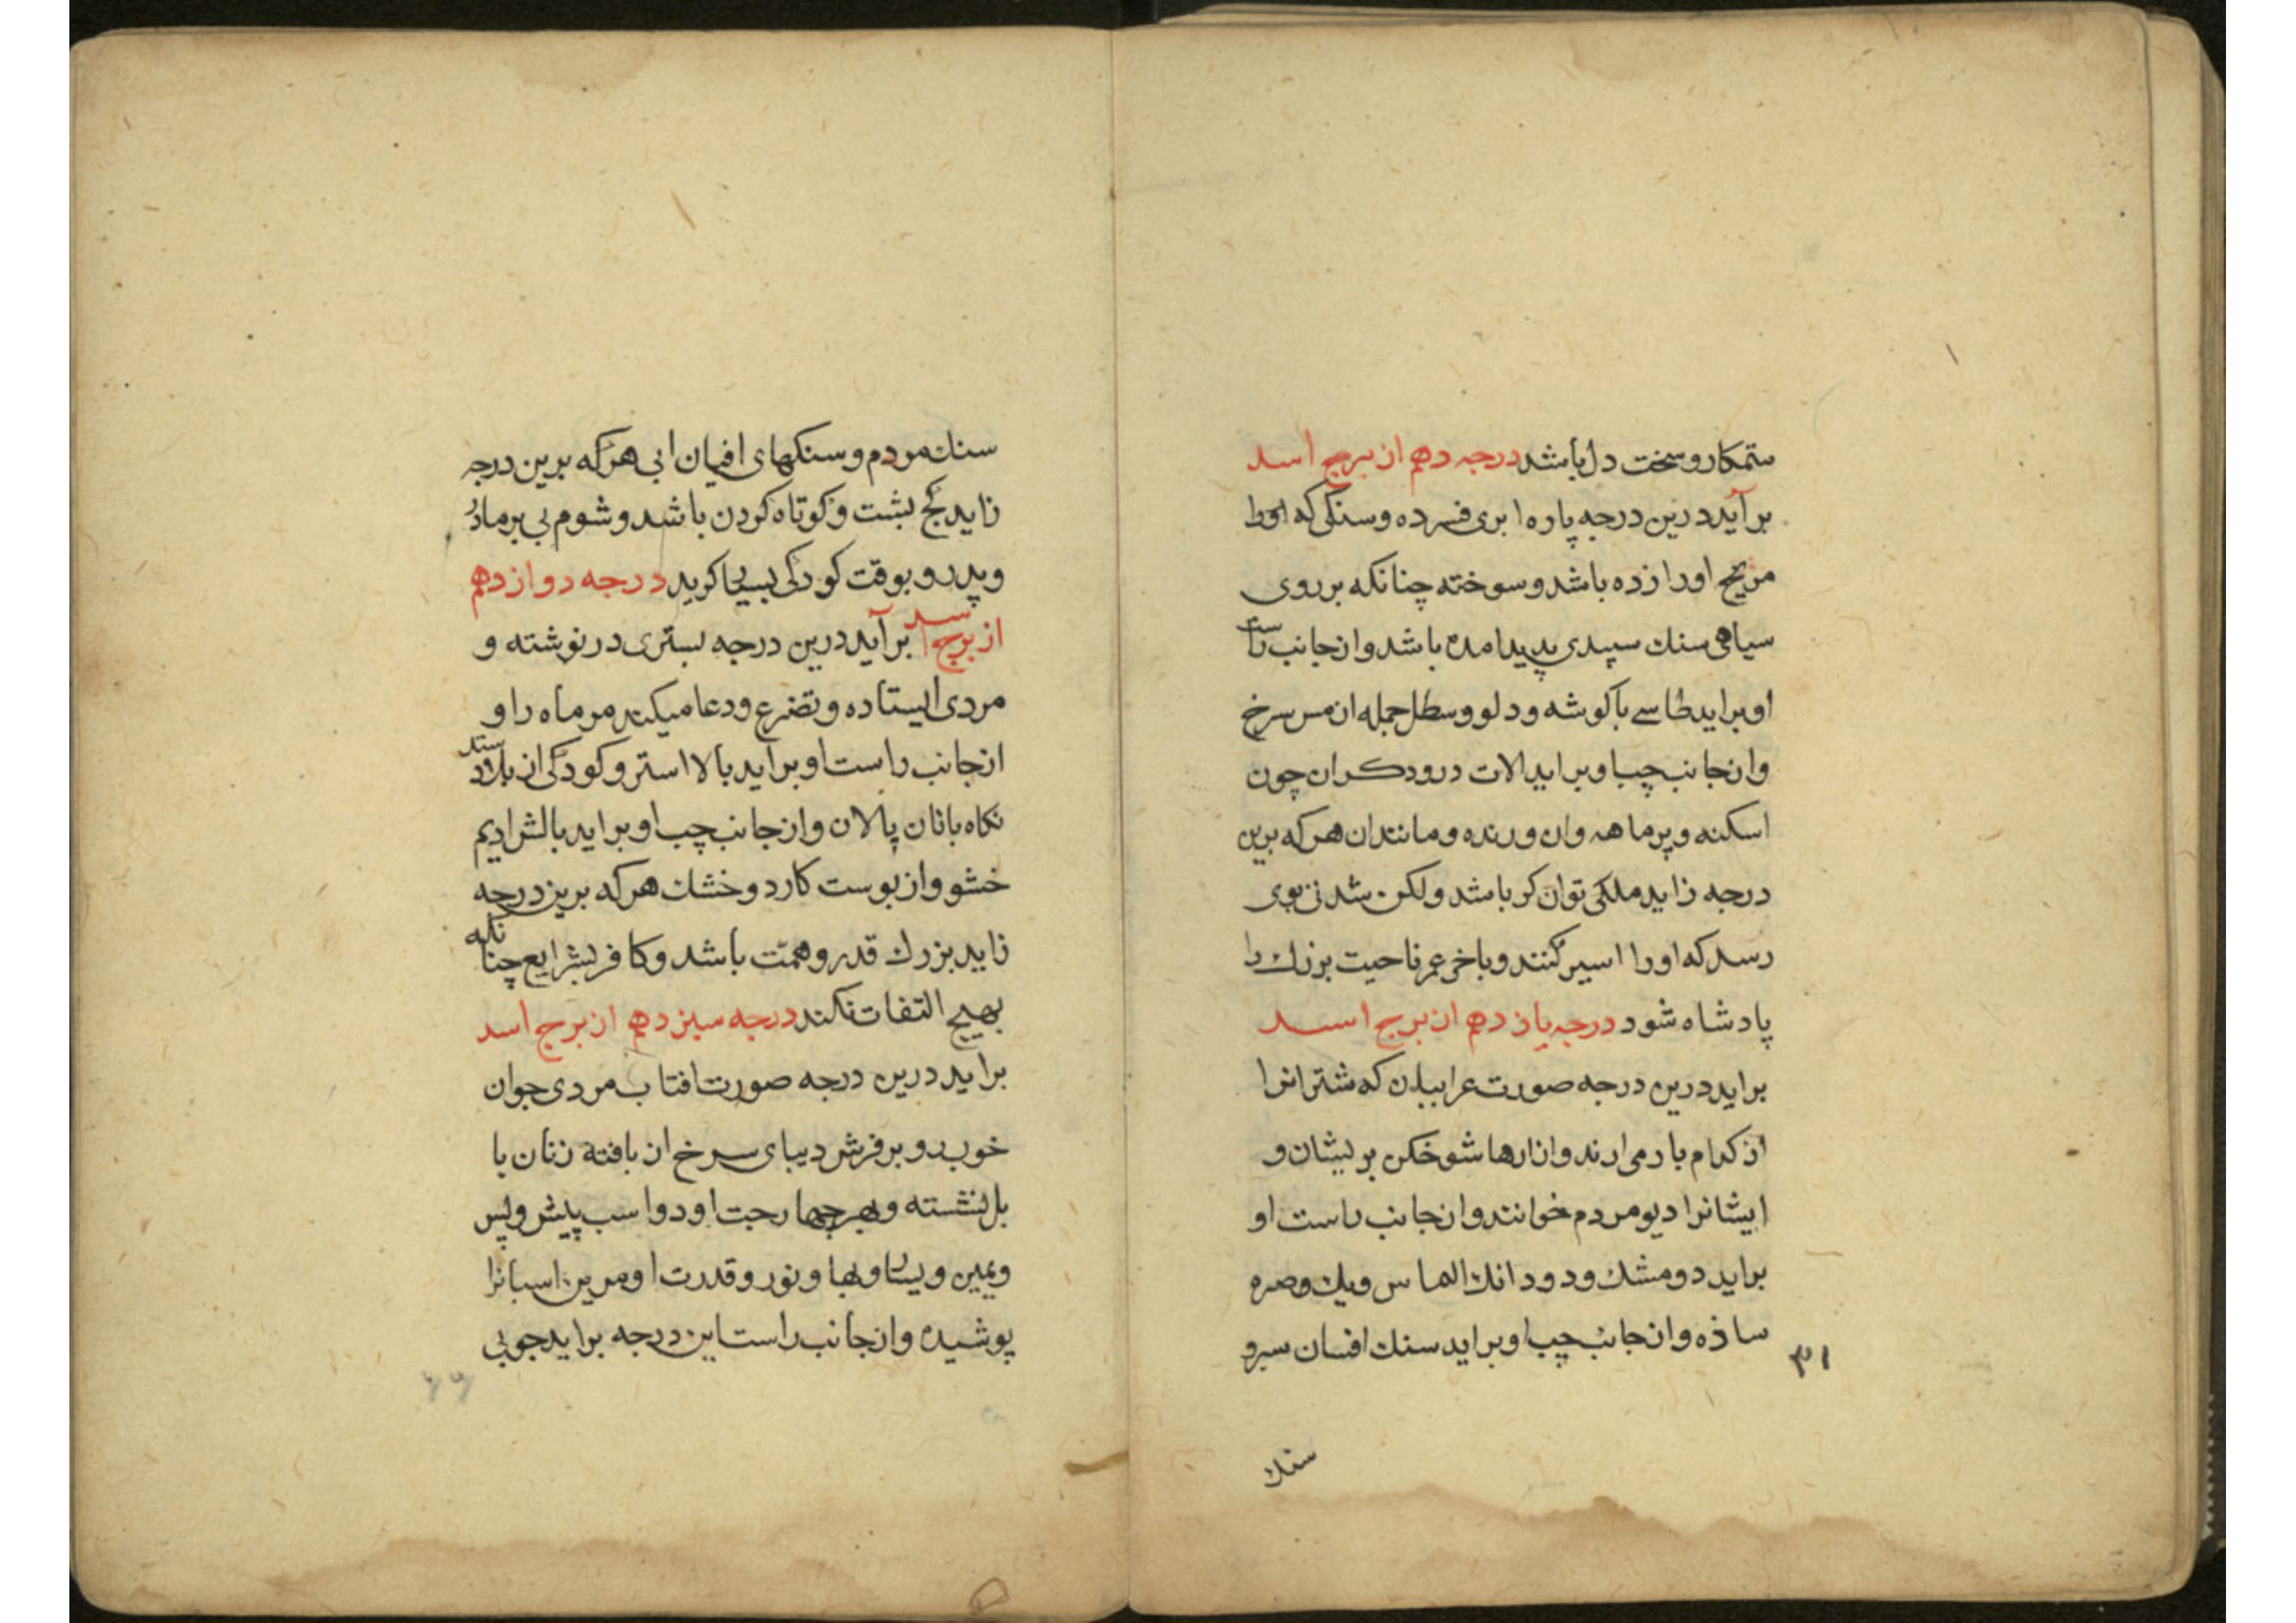 ستمکار و سخت دل باشد درجه دهم از برج اسد
برآید درین درجه پاره ابری فسرده و سنکی که او را
مریخ اورا زده باشد و سوخته چنانکه بر روی
سیاهی سنك سپیدی پدید امده باشد و از جانب راست
او براید طاسے با کوشه و دلو و سطل جمله از مس سرخ
و از جانب چپ او براید الات درودکران چون
اسکنه و پرماهه وان و رنده و مانند ان هرکه برین
درجه زاید ملکی توان کر باشد ولکن شدنی بوی
رسد که اورا اسیر کنند و باخر عمر ناحیت بزرك را
پادشاه شود درجه یازدهم از برج اسد
براید درین درجه صورت عرابیان که شترانرا
از کرام بار می ارند وانارها شوخکن بر لیشان و
ایشانرا دیو مردم خوانند و از جانب راست او
براید دو مشك و دو دانك الماس ویك وصره
ساذه و از جانب چپ او براید سنك افسان سبرو
۳۱
سنك
سنك مردم و سنکهای افیان ابی هرکه برین درجه
زاید کج بشت و کوتاه کردن باشد و شوم بی بر مادر
و پدر و بوقت کودکی بسیار کرید درجه دوازدهم
از برج اسد برآید درین درجه بستری در نوشته و
مردی ایستاده و تضرع و دعا میکند مر ماه را و
از جانب راست او براید بالا استر و کودکی از بلاد سند
نکاه بانان پالان و از جانب چپ او براید بالش ادیم
خشو و از پوست کارد و خشك هرکه برین درجه
زاید بزرك قدر و همّت باشد و کافر بشرایع چنانکه
بهیچ التفات نکند درجه سیزدهم از برج اسد
براید درین درجه صورت افتاب مردی جوان
خوب رو بر فرش دیبای سرخ از بافته زنان با
بل نشسته و بهر چهار جهت او دو اسب پیش و پس
و یمین و یسار و بها و نور و قدرت او مر این اسبانرا
پوشیده و از جانب راست این درجه براید جوبی